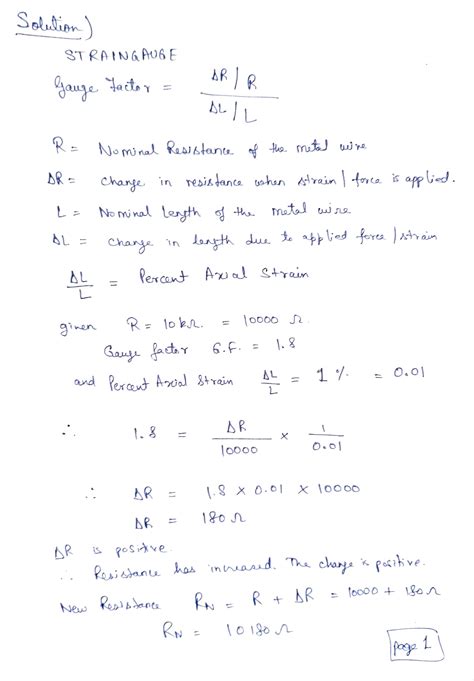 Solution)
STRAINGAUGE
Gauge Factor = ΔR/R
ΔL/L
R = Nominal Resistance of the metal wire
ΔR = change in resistance when strain/force is applied.
L = Nominal Length of the metal wire
ΔL = change in length due to applied force/strain
ΔL/L = Percent Axial Strain
given R = 10kΩ. = 10000 Ω.
Gauge factor G.F. = 1.8
and Percent Axial Strain ΔL/L = 1 % = 0.01
∴ 1.8 = ΔR/10000 × 1/0.01
∴ ΔR = 1.8 × 0.01 × 10000
ΔR = 180 Ω
ΔR is positive.
∴ Resistance has increased. The change is positive.
New Resistance R_N = R + ΔR = 10000 + 180 Ω
R_N = 10180 Ω
page 1